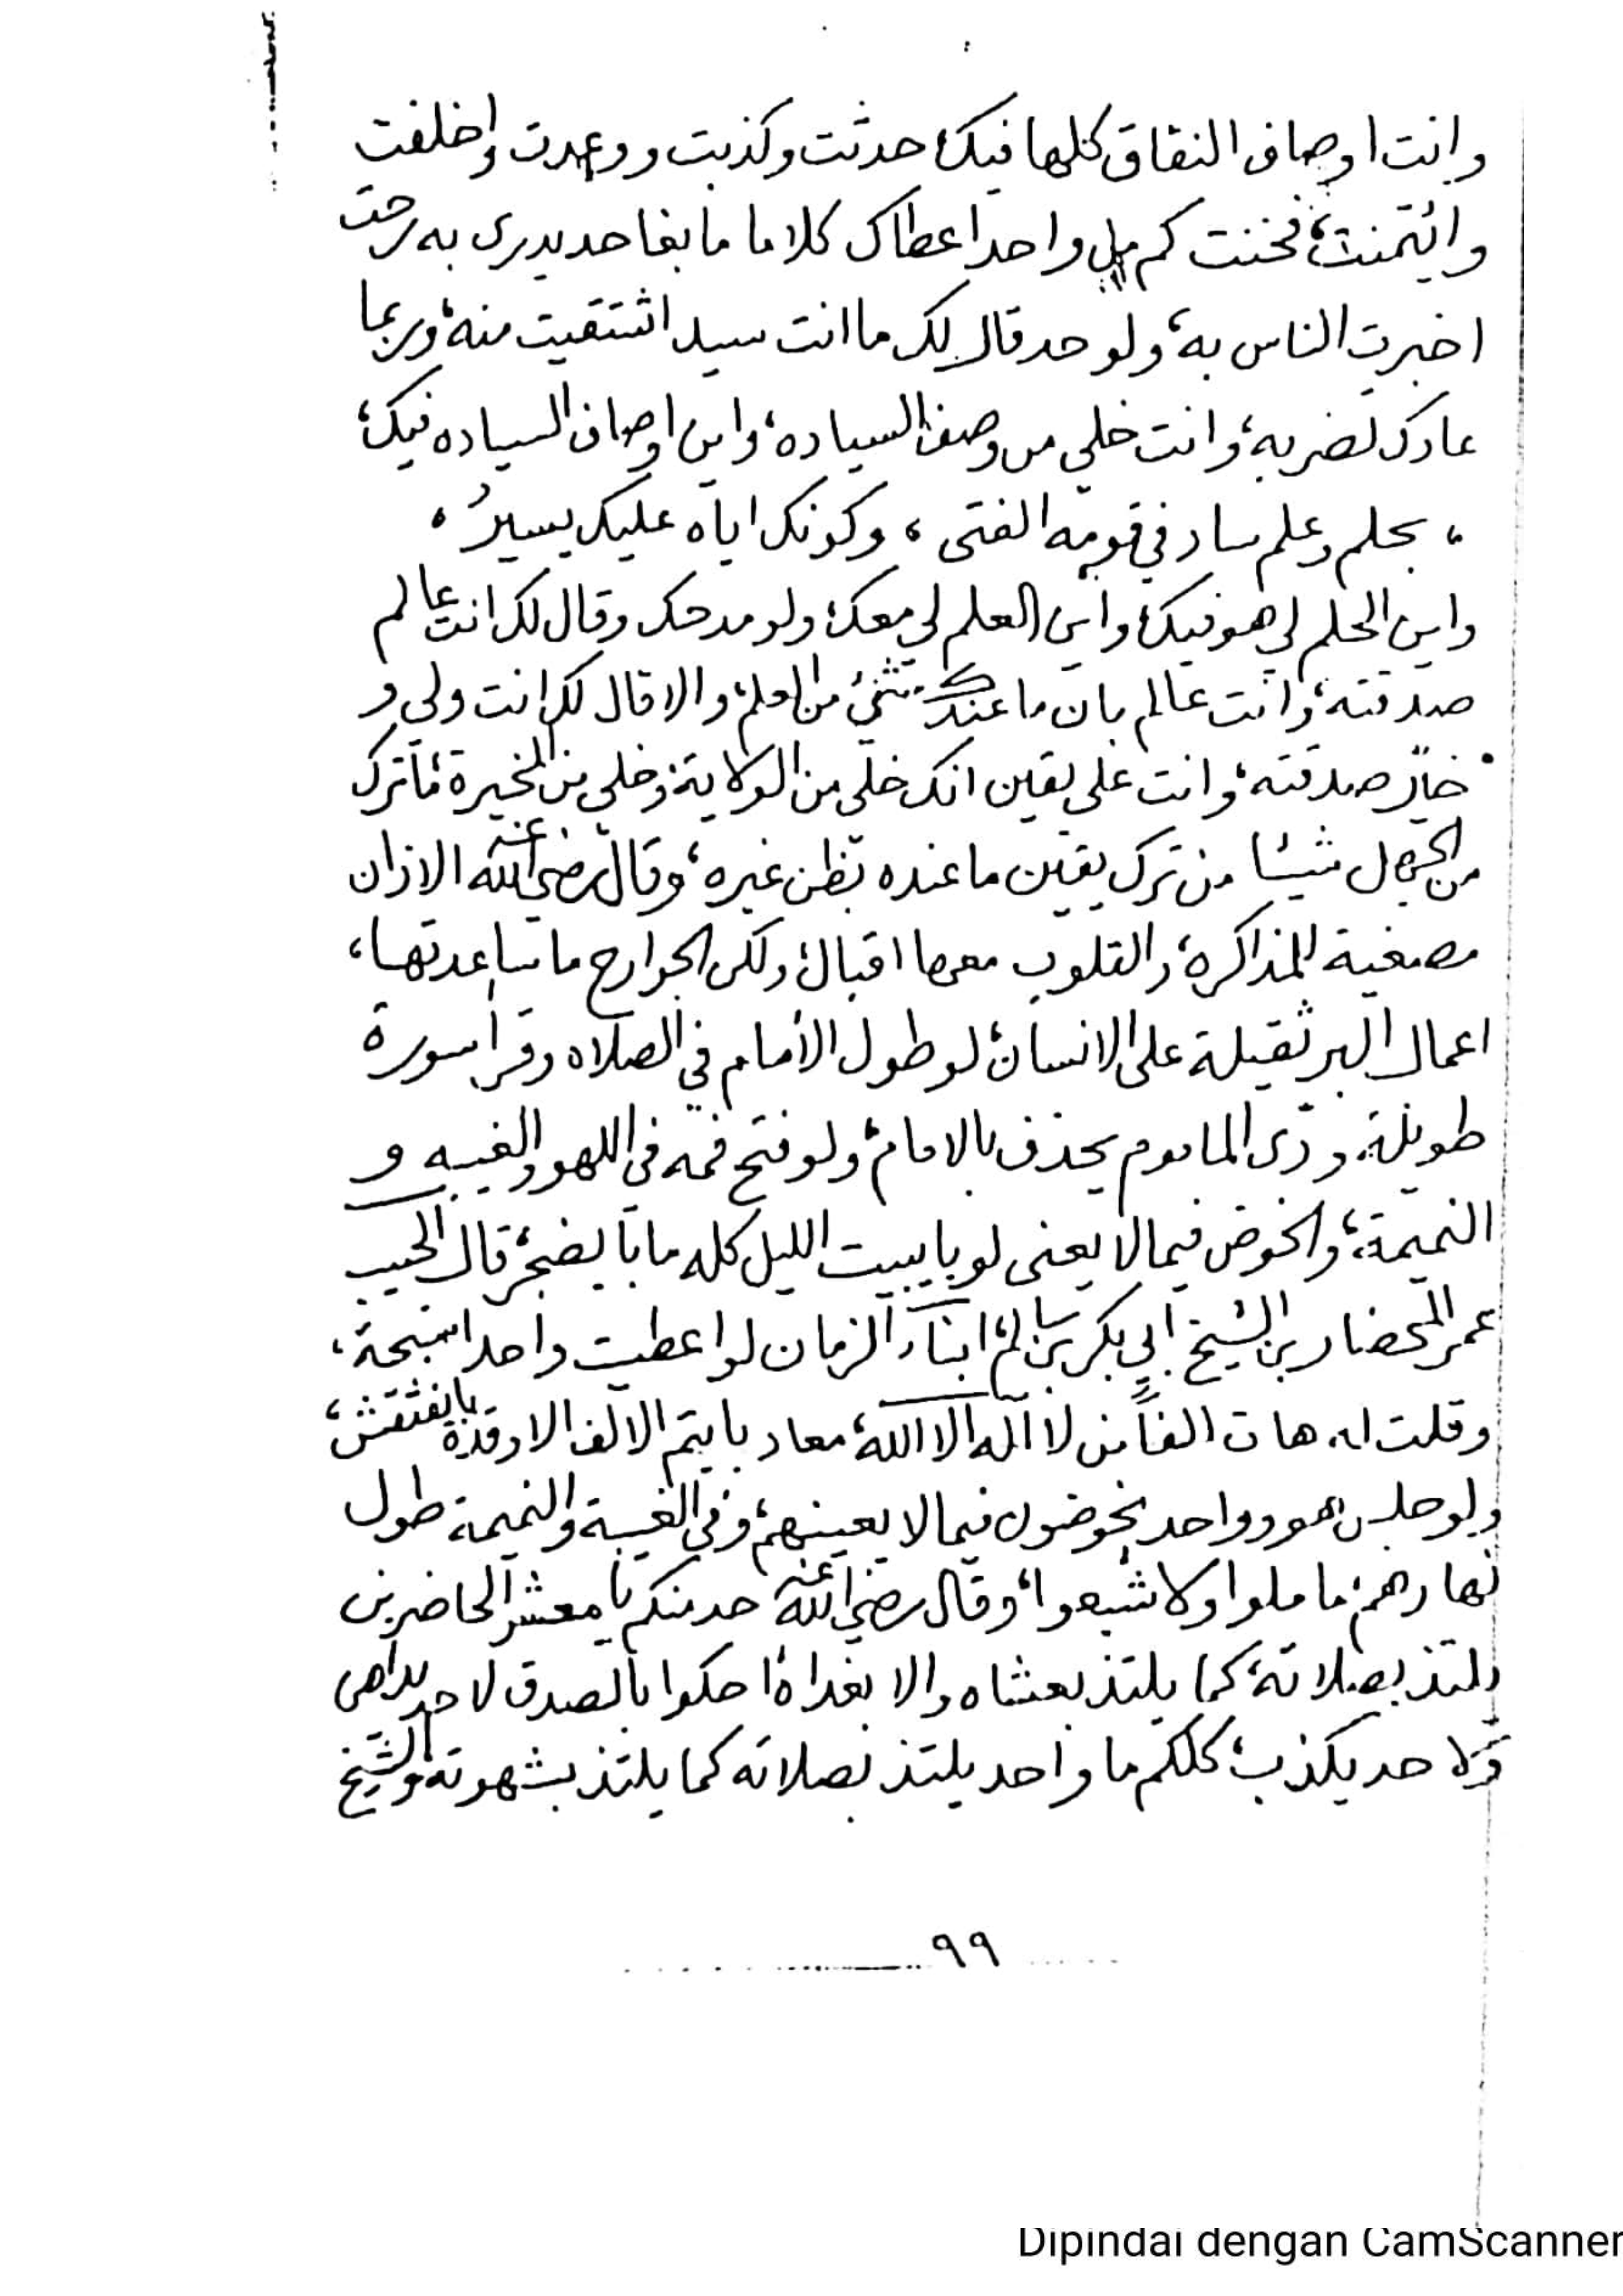 وانت اوصاف النفاق كلها فيك، حدثت وكذبت ووعدت واخلفت
وائتمنت، فخنت كم من واحد اعطاك كلاما ما بغا حد يدري به رحت
اخبرت الناس به، ولو حد قال لك ما انت سيد اشتقيت منه، وربما
عادك تضربه، وانت خلي من وصف السياده، واين اوصاف السياده فيك،
، بحلم وعلم ساد في قومه الفتى ، وكونك اياه عليك يسيرُ ،
واين الحلم لي هو فيك، واين العلم لي معك، ولو مدحك وقال لك انت عالم
صدقته، وانت عالم بان ما عندك شئ من العلم، والا قال لك انت ولي و
خيّر صدقته، وانت على يقين انك خلي من الولاية، وخلي من الخيرة، ما ترك
من الجهل شيئا من ترك يقين ما عنده بظن غيره، وقال رضي الله عنه الاذان
مصغية للمذاكره، والقلوب معها اقبال، ولكن الجوارح ما تساعدتها،
اعمال البر ثقيلة على الانسان، لو طول الأمام في الصلاه وقرا سورة
طويلة، وذى الماموم يحذف بالامام، ولو فتح فمه في اللهو والغيبه و
النميمة، والخوض فيما لا يعنى لو با يبيت الليل كله ما با يضجر، قال الحبيب
عمر المحضار بن الشيخ ابي بكر بن سالم، ابناء الزمان لو اعطيت واحدا سبحة،
وقلت له هات الفاً من لا اله الا الله، معاد با يتم الالف الا وقده با يفتقش،
ولو جلس هو وواحد يخوضون فيما لا يعينهم، وفي الغيبة والنميمة طول
نهارهم، ما ملوا ولا شبعوا، وقال رضي الله عنه حد منكم يا معشر الحاضرين
يلتذ بصلاته، كما يلتذ بعشاه والا بغداه، احكوا بالصدق لا حد يداهن
ولا حد يكذب، كلكم ما واحد يلتذ بصلاته كما يلتذ بشهوته، والشيخ
٩٩
Dipindai dengan CamScanner